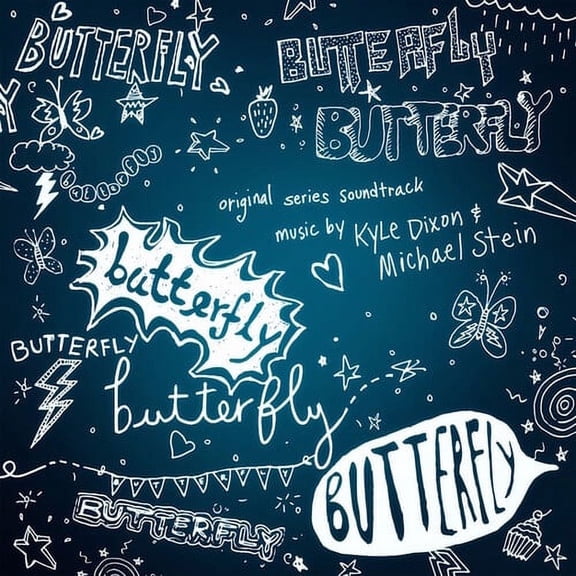 BUTTERFLY
BUTTERFLY
BUTTERFLY
Y
butterfly
original series soundtrack
music by Kyle Dixon &
Michael Stein
butterfly
BUTTERFLY
butterfly
BUTTERFLY
BUTTERFLY
BUTTERFLY